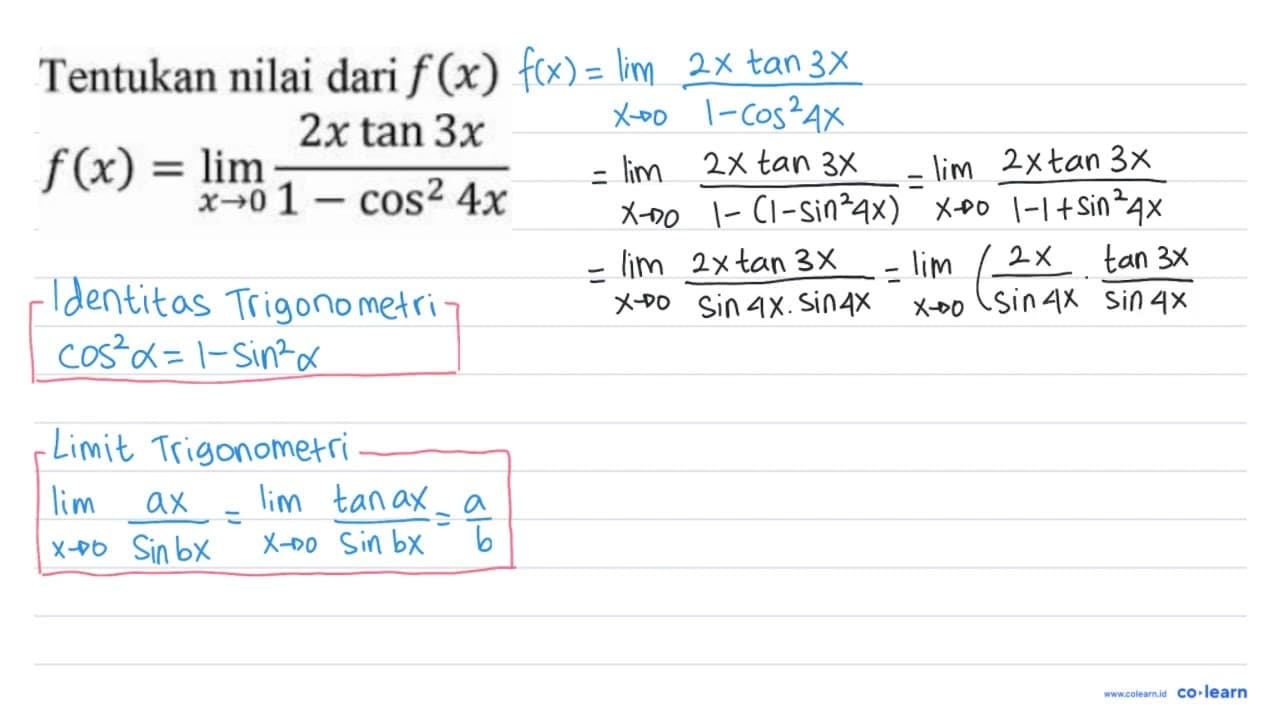 Tentukan nilai dari f(x)
f(x) = lim x→0 2x tan 3x / 1 − cos² 4x
f(x) = lim x→0 2x tan 3x / 1-cos²4x
= lim x→0 2x tan 3x / 1-(1-sin²4x) = lim x→0 2x tan 3x / 1-1+sin²4x
= lim x→0 2x tan 3x / sin 4x . sin 4x = lim x→0 (2x / sin 4x . tan 3x / sin 4x
Identitas Trigonometri
cos²α = 1-sin²α
Limit Trigonometri
lim x→0 ax / sin bx = lim x→0 tan ax / sin bx = a / b
www.colearn.id co·learn